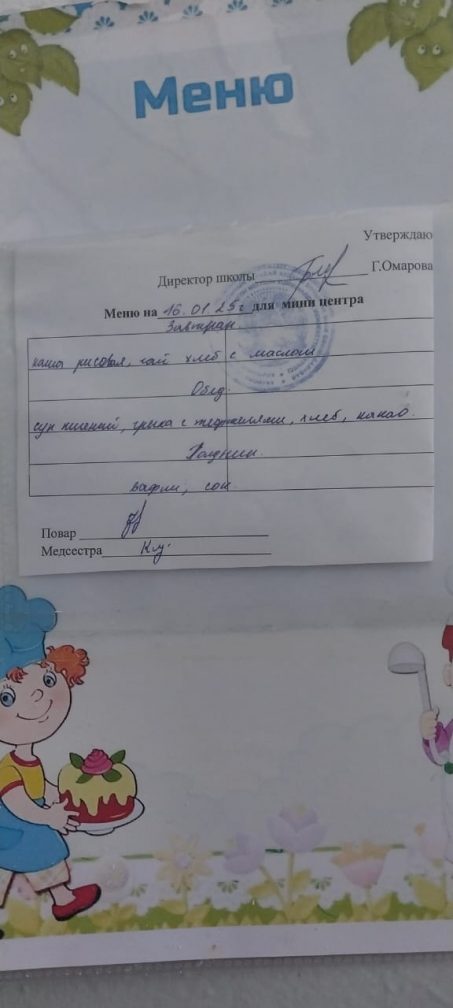 Меню
Утверждаю
Директор школы ____________ Г.Омарова
Меню на 16.01.25г для мини центра
Завтрак
каша рисовая, чай хлеб с маслом
Обед
суп пшенный, гречка с тефтелями, хлеб, какао.
Полдник
вафли, сок
Повар
Медсестра